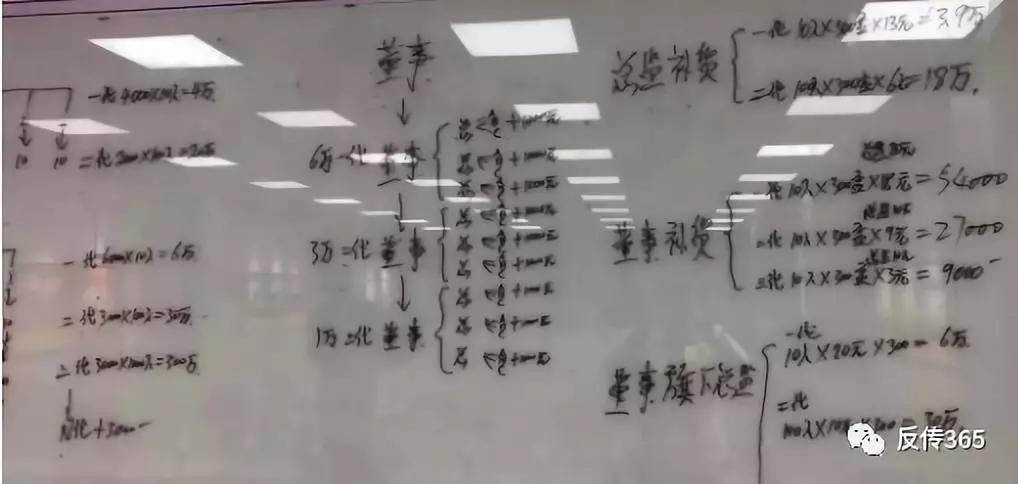 一代4000×10人=4万
10 10 二代2000×100人=20万
一代6000×10人=6万
二代3000×100人=30万
三代3000×1000人=300万
N代+3000
董事
6万一代董事
3万二代董事
1万三代董事
总 +1000元
总 +1000元
总 +1000元
总 +1000元
总 +1000元
总 +1000元
总 +1000元
总 +1000元
总 +1000元
总监补货
一代10人×300盒×13元=3.9万
二代100人×300盒×6元=18万
董事补货
一代10人×300盒×18元=54000
二代10人×300盒×9元=27000
三代10人×300盒×3元=9000
董事旗下总监
一代
10人×20元×300=6万
二代
100人×10元×300=30万
反传365